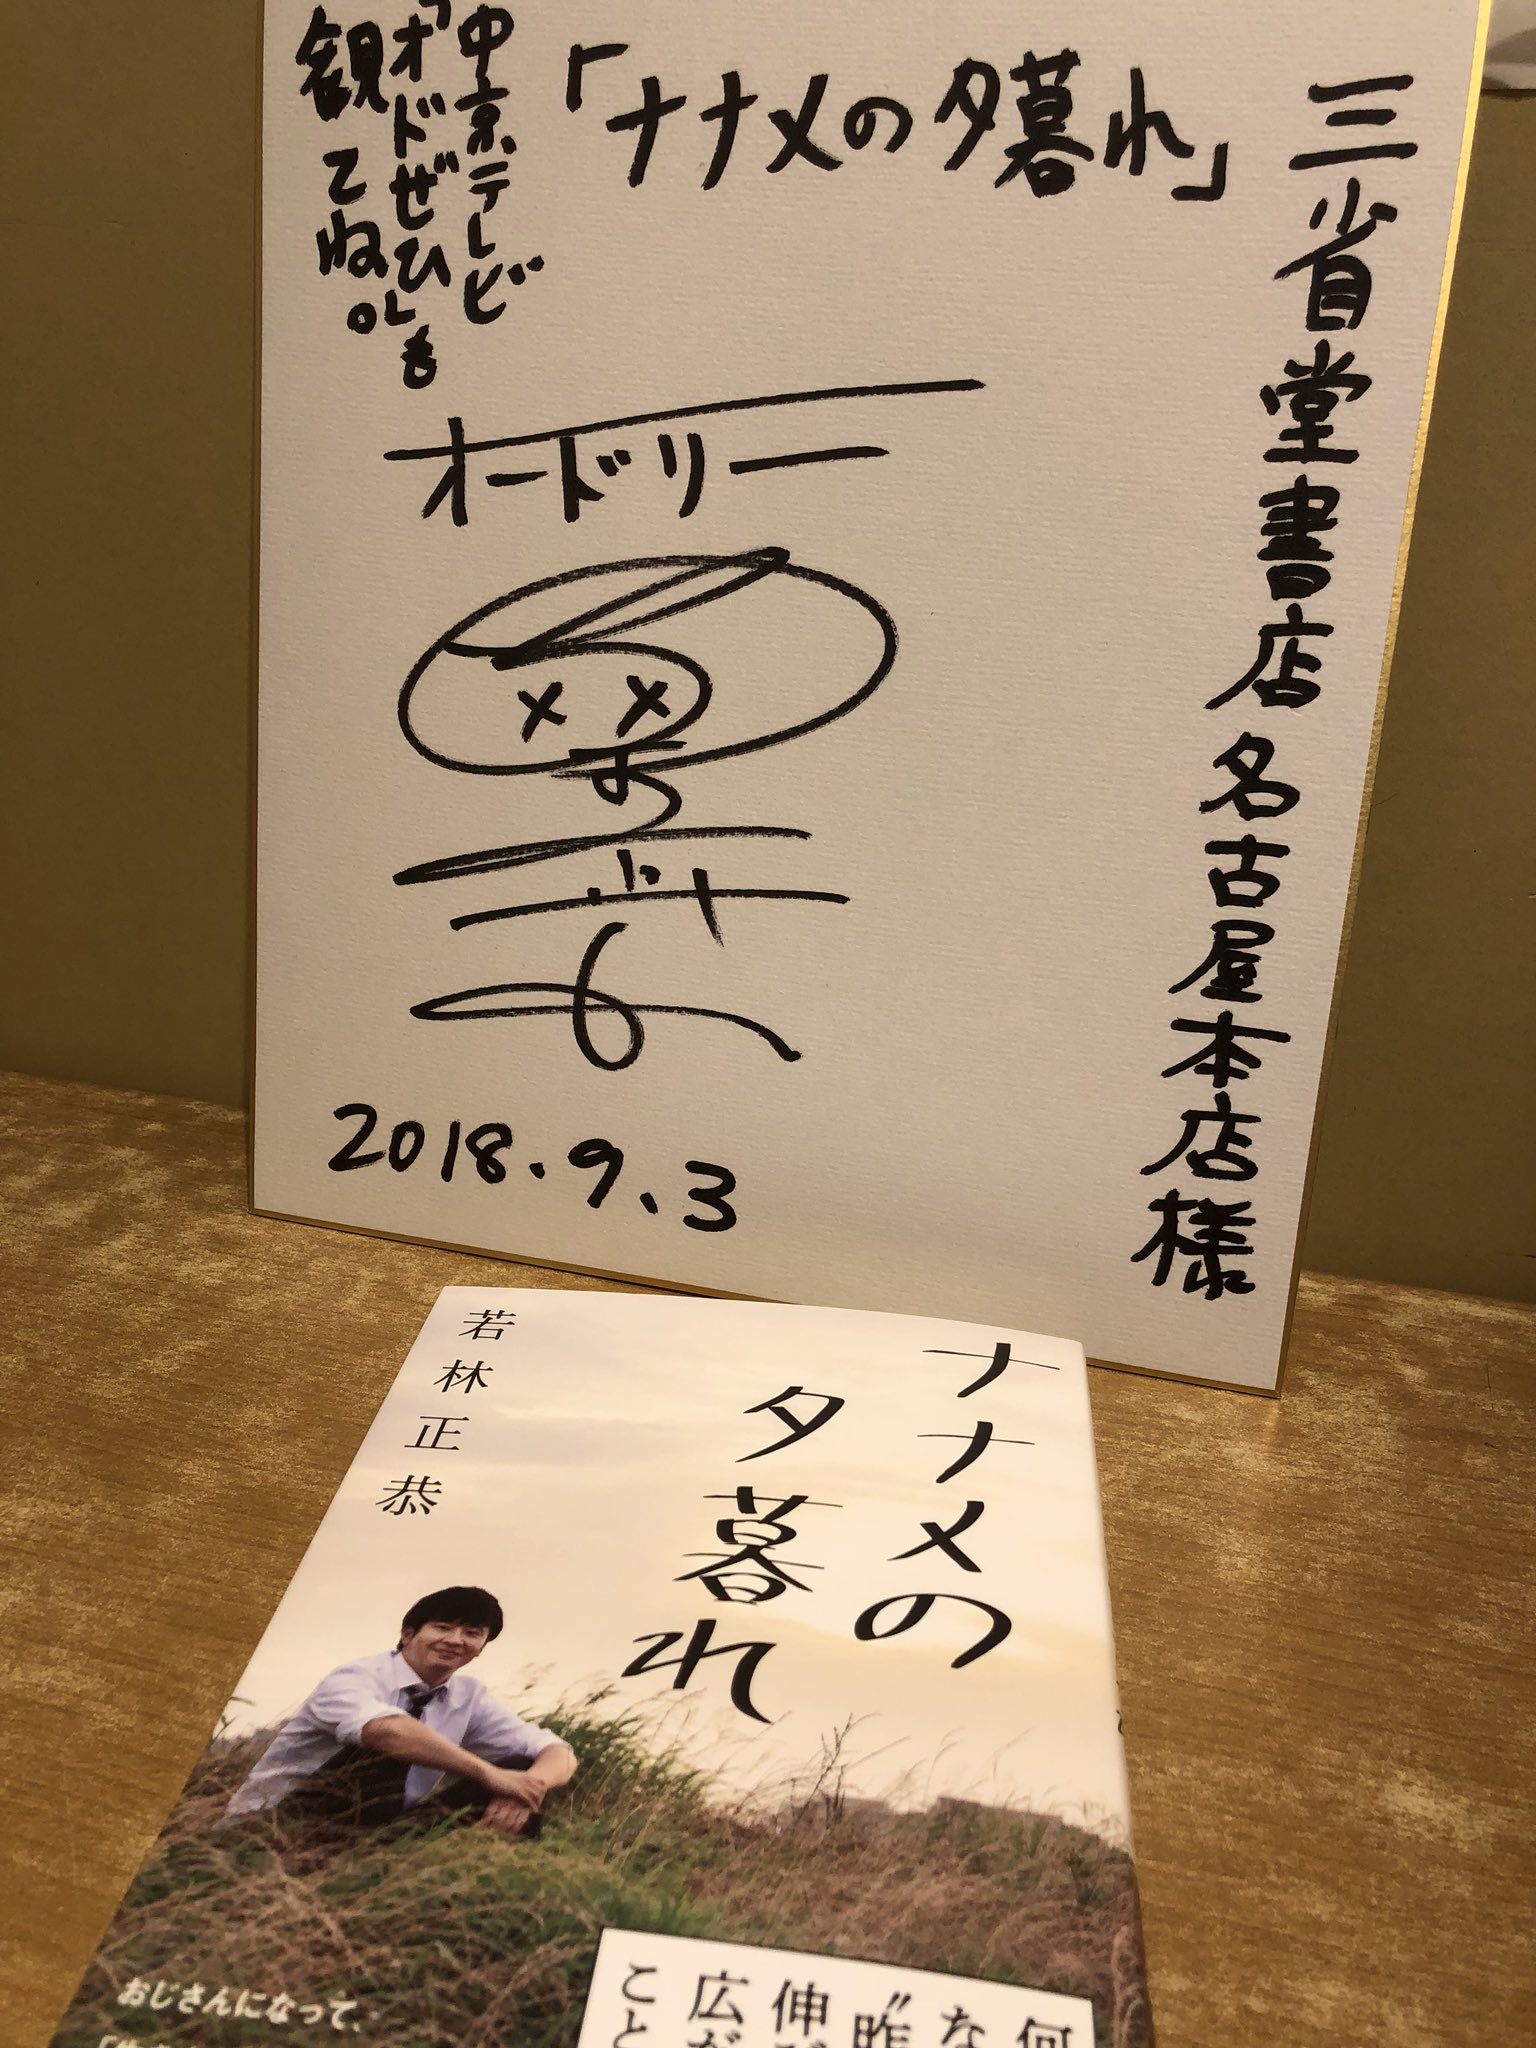 三省堂書店名古屋本店様
「ナナメの夕暮れ」
中京テレビ
「オドぜひ」も
観てね。
オードリー
2018.9.3
ナナメの
夕暮れ
若林正恭
おじさんになって、
何
な
〝昨
伸
広だ
こと